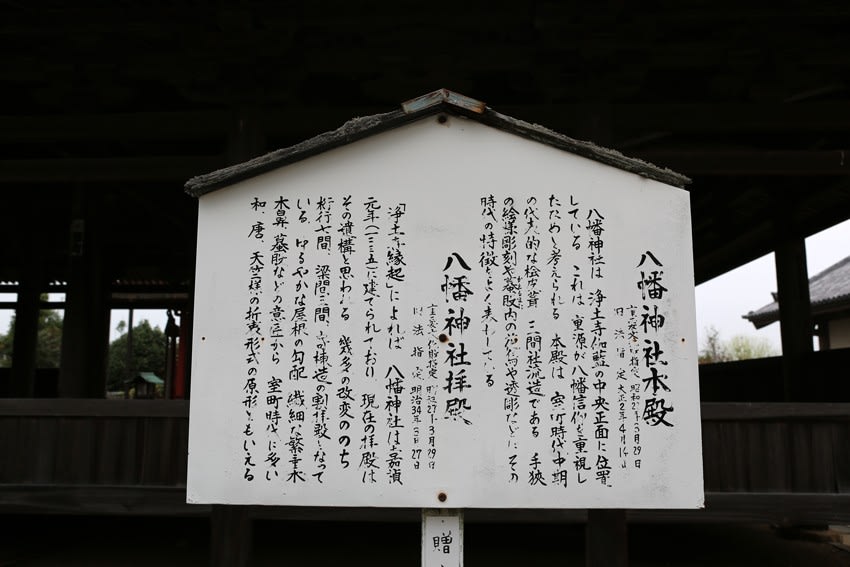 八幡神社本殿
重要文化財指定 昭和27年3月29日
旧法指定 大正2年4月14日
八幡神社は 浄土寺伽藍の中央正面に位置
している これは 重源が八幡信仰を重視し
たためと考えられる 本殿は 室町時代中期
の代表的な桧皮葺 三間社流造である 手狭
の絵様彫刻や蟇股内の
や透彫などに その
時代の特徴をよく表わしている
八幡神社拝殿
重要文化財指定 昭和27年3月29日
旧法指定 明治34年3月27日
「浄土寺縁起」によれば 八幡神社は 嘉禎
元年(一二三五)に建てられており 現在の拝殿は
その遺構と思われる 幾多の改変ののち
桁行七間、梁間三間、寄棟造の割拝殿となって
いる ゆるやかな屋根の勾配 繊細な繁垂木
木鼻、蟇股などの意匠から 室町時代に多い
和、唐、天竺様の折衷形式の原形ともいえる
贈